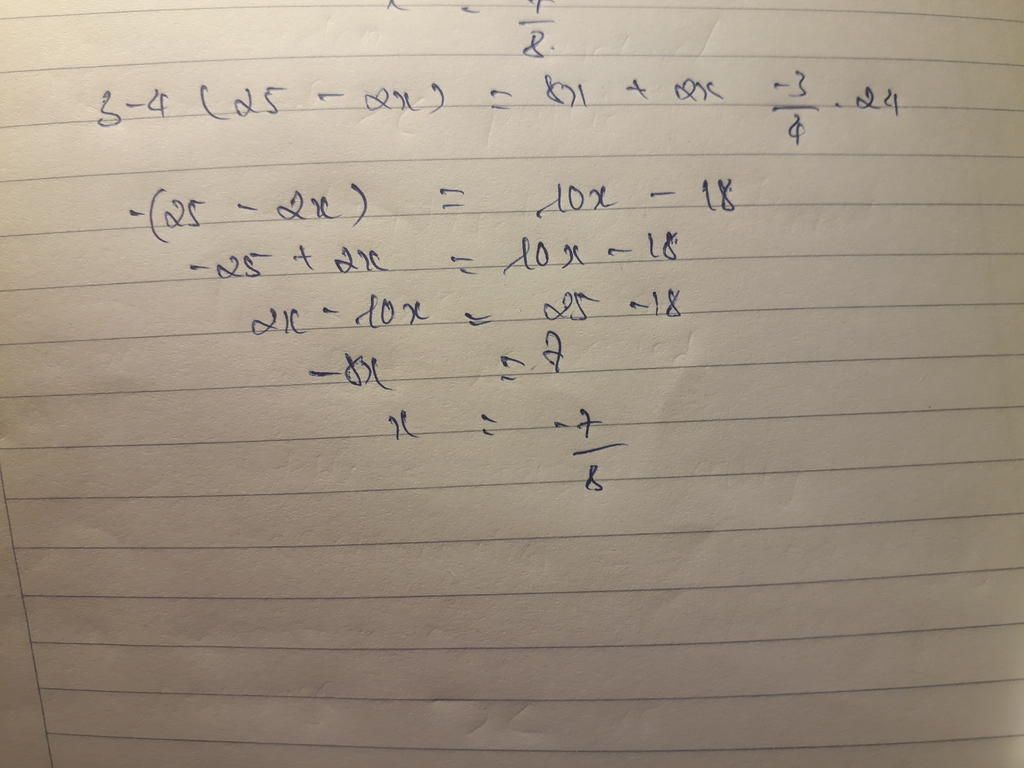 8.
3-4 (25 - 2x) = 8x + 2x -3/4 . 24
-(25 - 2x) = 10x - 18
-25 + 2x = 10x - 18
2x - 10x = 25 - 18
-8x = 7
x = -7/8